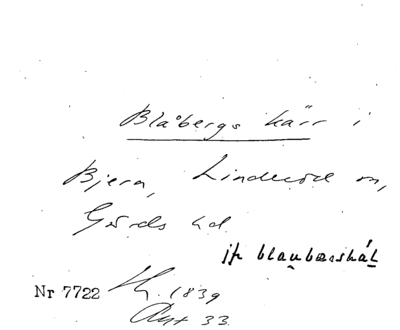 Blåbergs kärr i
Bjera, Linderöd sn,
Gärds hd.
jfr blaubærshál
Nr 7722 1839
Avst 33.